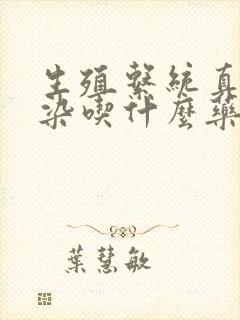 生殖繫統真
染喫什麼藥
葉慧敏